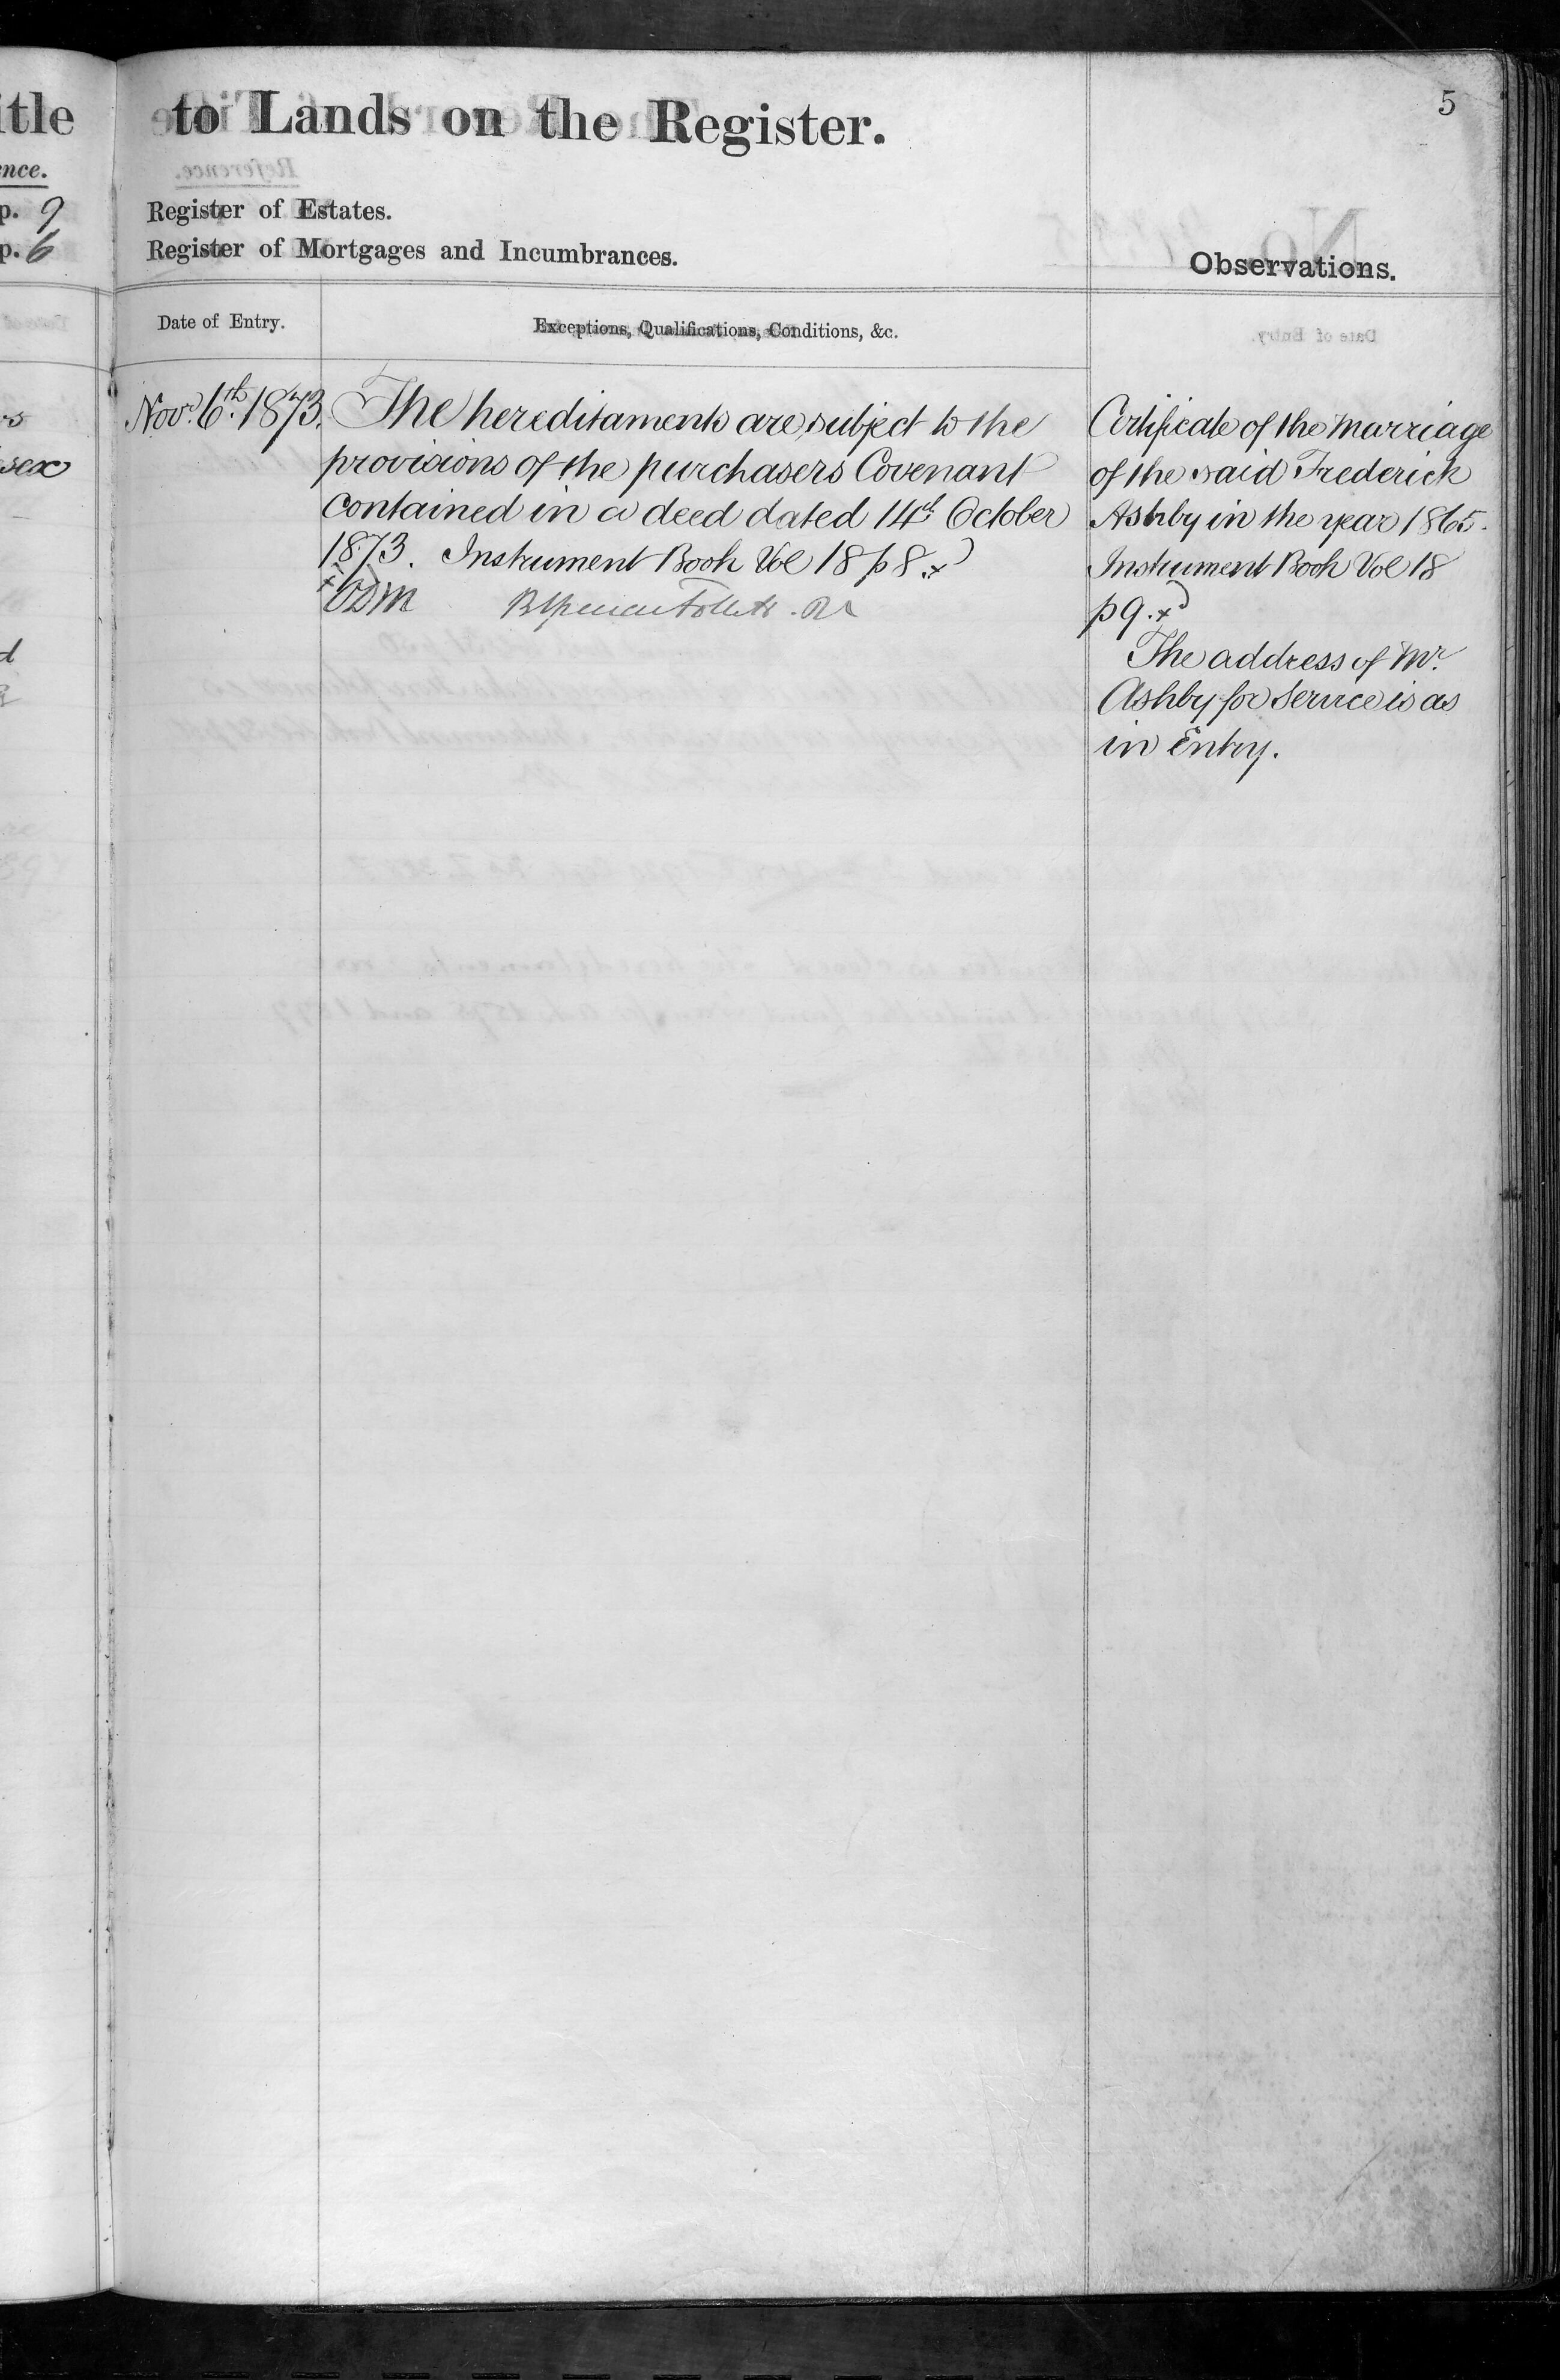 itle
ence.
p. 9
p. 6
sex
to Lands on the Register.
5
Register of Estates.
Register of Mortgages and Incumbrances.
Observations.
Date of Entry.
Exceptions, Qualifications, Conditions, &c.
Novr. 6th. 1873.
The hereditaments are subject to the
provisions of the purchasers Covenant
contained in a deed dated 14th October
1873. Instrument Book Vol 18 p 8.x
x ODM
Certificate of the marriage
of the said Frederick
Ashby in the year 1865.
Instrument Book Vol 18
p 9.x
The address of Mr.
Ashby for Service is as
in Entry.